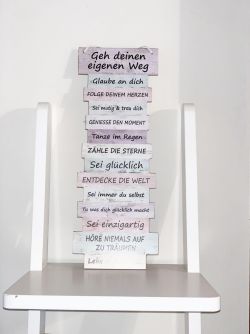 Geh deinen
eigenen Weg
Glaube an dich
FOLGE DEINEM HERZEN
Sei mutig & treu dich
GENIESSE DEN MOMENT
Tanze im Regen
ZÄHLE DIE STERNE
Sei glücklich
ENTDECKE DIE WELT
Sei immer du selbst
Tu was dich glücklich macht
Sei einzigartig
HÖRE NIEMALS AUF
ZU TRÄUMEN